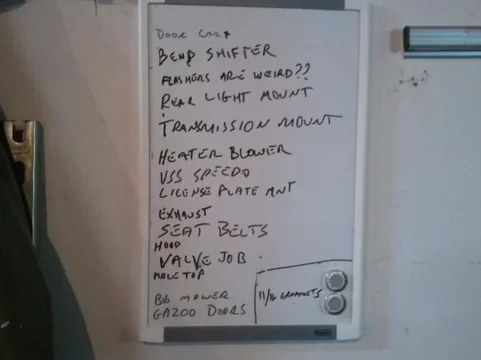 DOOR
BEND SHIFTER
FLASHERS ARE WEIRD??
REAR LIGHT MOUNT
TRANSMISSION MOUNT
HEATER BLOWER
VSS SPEEDO
LICENSE PLATE MNT
EXHAUST
SEAT BELTS
HOOD
VALVE JOB
TOP
BIG MOWER
GAZOO DOORS
11/16 GROMMETS